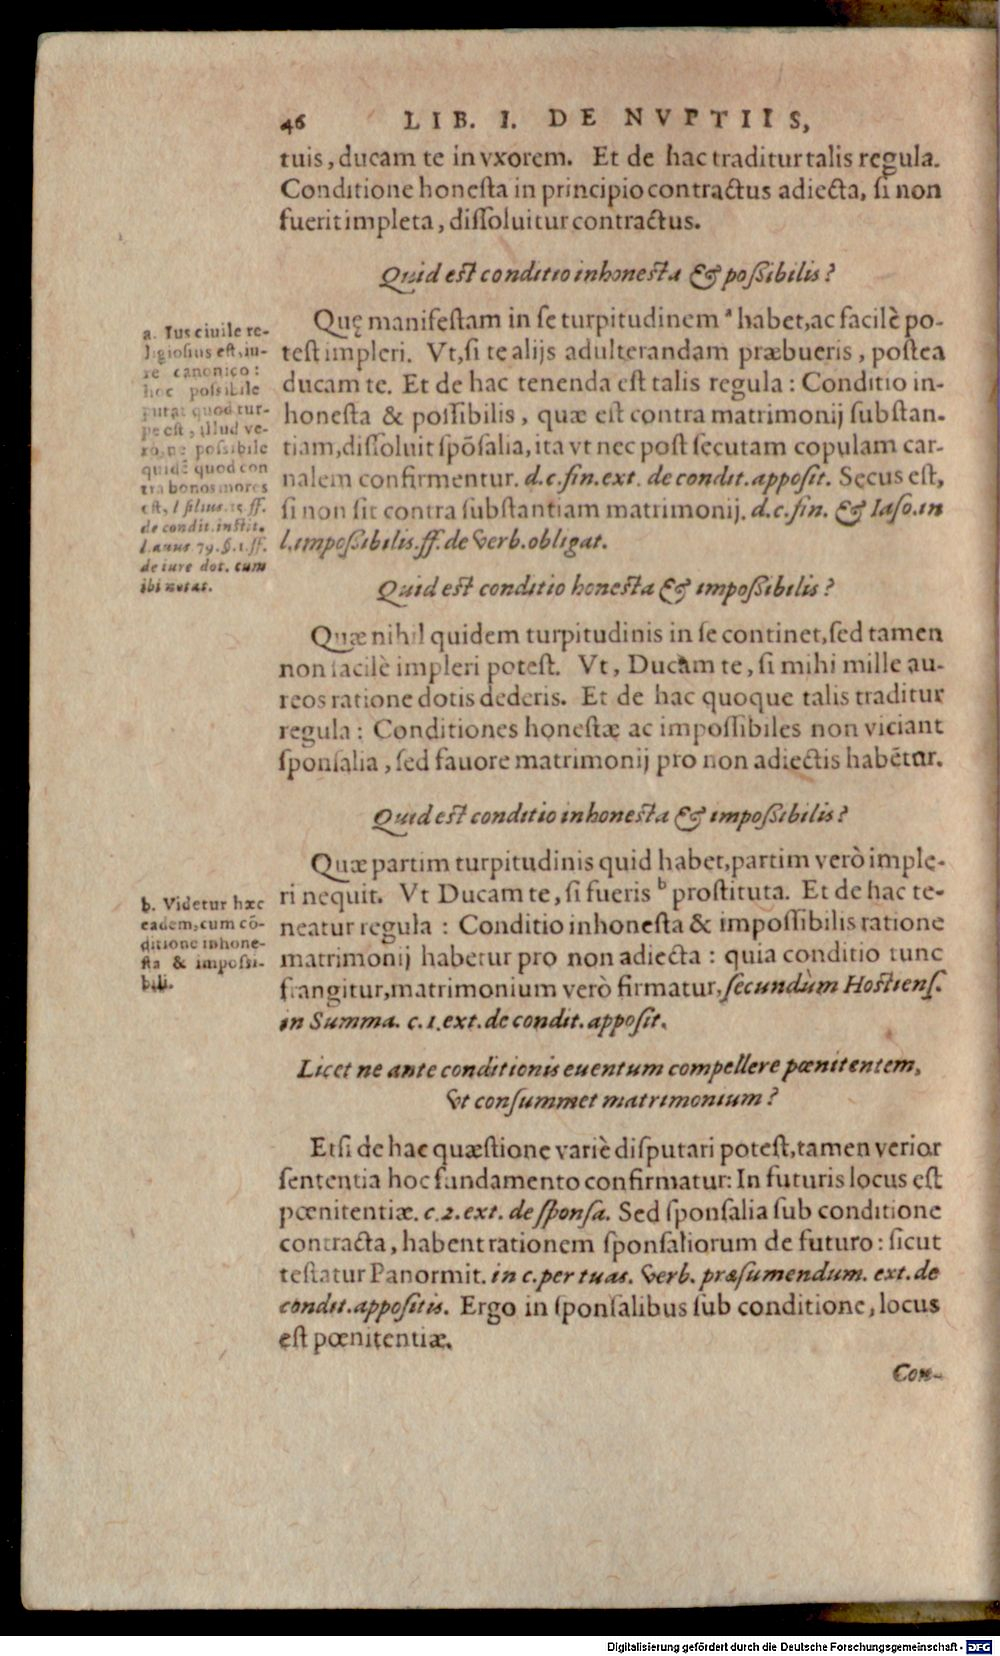 46 LIB. I. DE NVPTIIS,
tuis, ducam te in vxorem. Et de hac traditur talis regula.
Conditione honesta in principio contractus adiecta, si non
fuerit impleta, dissoluitur contractus.
Quid est conditio inhonesta & possibilis?
Quę manifestam in se turpitudinem ᵃ habet, ac facilè po-
test impleri. Vt, si te alijs adulterandam præbueris, postea
ducam te. Et de hac tenenda est talis regula: Conditio in-
honesta & possibilis, quæ est contra matrimonij substan-
tiam, dissoluit spōsalia, ita vt nec post secutam copulam car-
nalem confirmentur. d.c.fin.ext. de condit.apposit. Secus est,
si non sit contra substantiam matrimonij. d.c.fin. & Iaso.in
l.impossibilis.ff.de verb.obligat.
a. Ius ciuile re-
ligiosius est, iu-
re canonico:
hoc possibile
putat quod tur-
pe est, illud ve-
rò, ne possibile
quidē quod con
tra bonos mores
est, l filius.15.ff.
de condit.instit.
l.auus 79.§.1.ff.
de iure dot. cum
ibi notat.
Quid est conditio honesta & impossibilis?
Quæ nihil quidem turpitudinis in se continet, sed tamen
non facilè impleri potest. Vt, Ducam te, si mihi mille au-
reos ratione dotis dederis. Et de hac quoque talis traditur
regula: Conditiones honestæ ac impossibiles non viciant
sponsalia, sed fauore matrimonij pro non adiectis habētur.
Quid est conditio inhonesta & impossibilis?
Quæ partim turpitudinis quid habet, partim verò imple-
ri nequit. Vt Ducam te, si fueris ᵇ prostituta. Et de hac te-
neatur regula: Conditio inhonesta & impossibilis ratione
matrimonij habetur pro non adiecta: quia conditio tunc
frangitur, matrimonium verò firmatur, secundùm Hostiens.
in Summa. c.1.ext.de condit.apposit.
b. Videtur hæc
eadem, cum cō-
ditione inhone-
sta & impossi-
bili.
Licet ne ante conditionis euentum compellere pœnitentem,
vt consummet matrimonium?
Etsi de hac quæstione variè disputari potest, tamen verior
sententia hoc fundamento confirmatur: In futuris locus est
pœnitentiæ. c.2.ext. de sponsa. Sed sponsalia sub conditione
contracta, habent rationem sponsaliorum de futuro: sicut
testatur Panormit. in c.per tuas. verb. præsumendum. ext.de
condit.appositis. Ergo in sponsalibus sub conditione, locus
est pœnitentiæ.
Con-
Digitalisierung gefördert durch die Deutsche Forschungsgemeinschaft - DFG